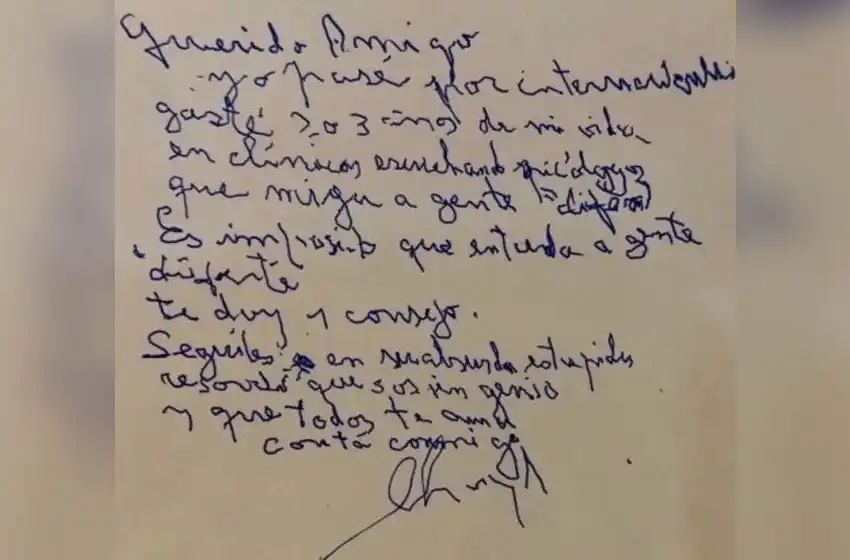 Querido Amigo
yo pasé por
gasté 2 o 3 años de mi vida
en clínicas escuchando psicólogos
que a gente
Es imposible que entienda a gente
te doy 1 consejo.
Seguiles en su absurda estupidez
recordá que sos un genio
y que todos te aman
contá conmigo
Charly